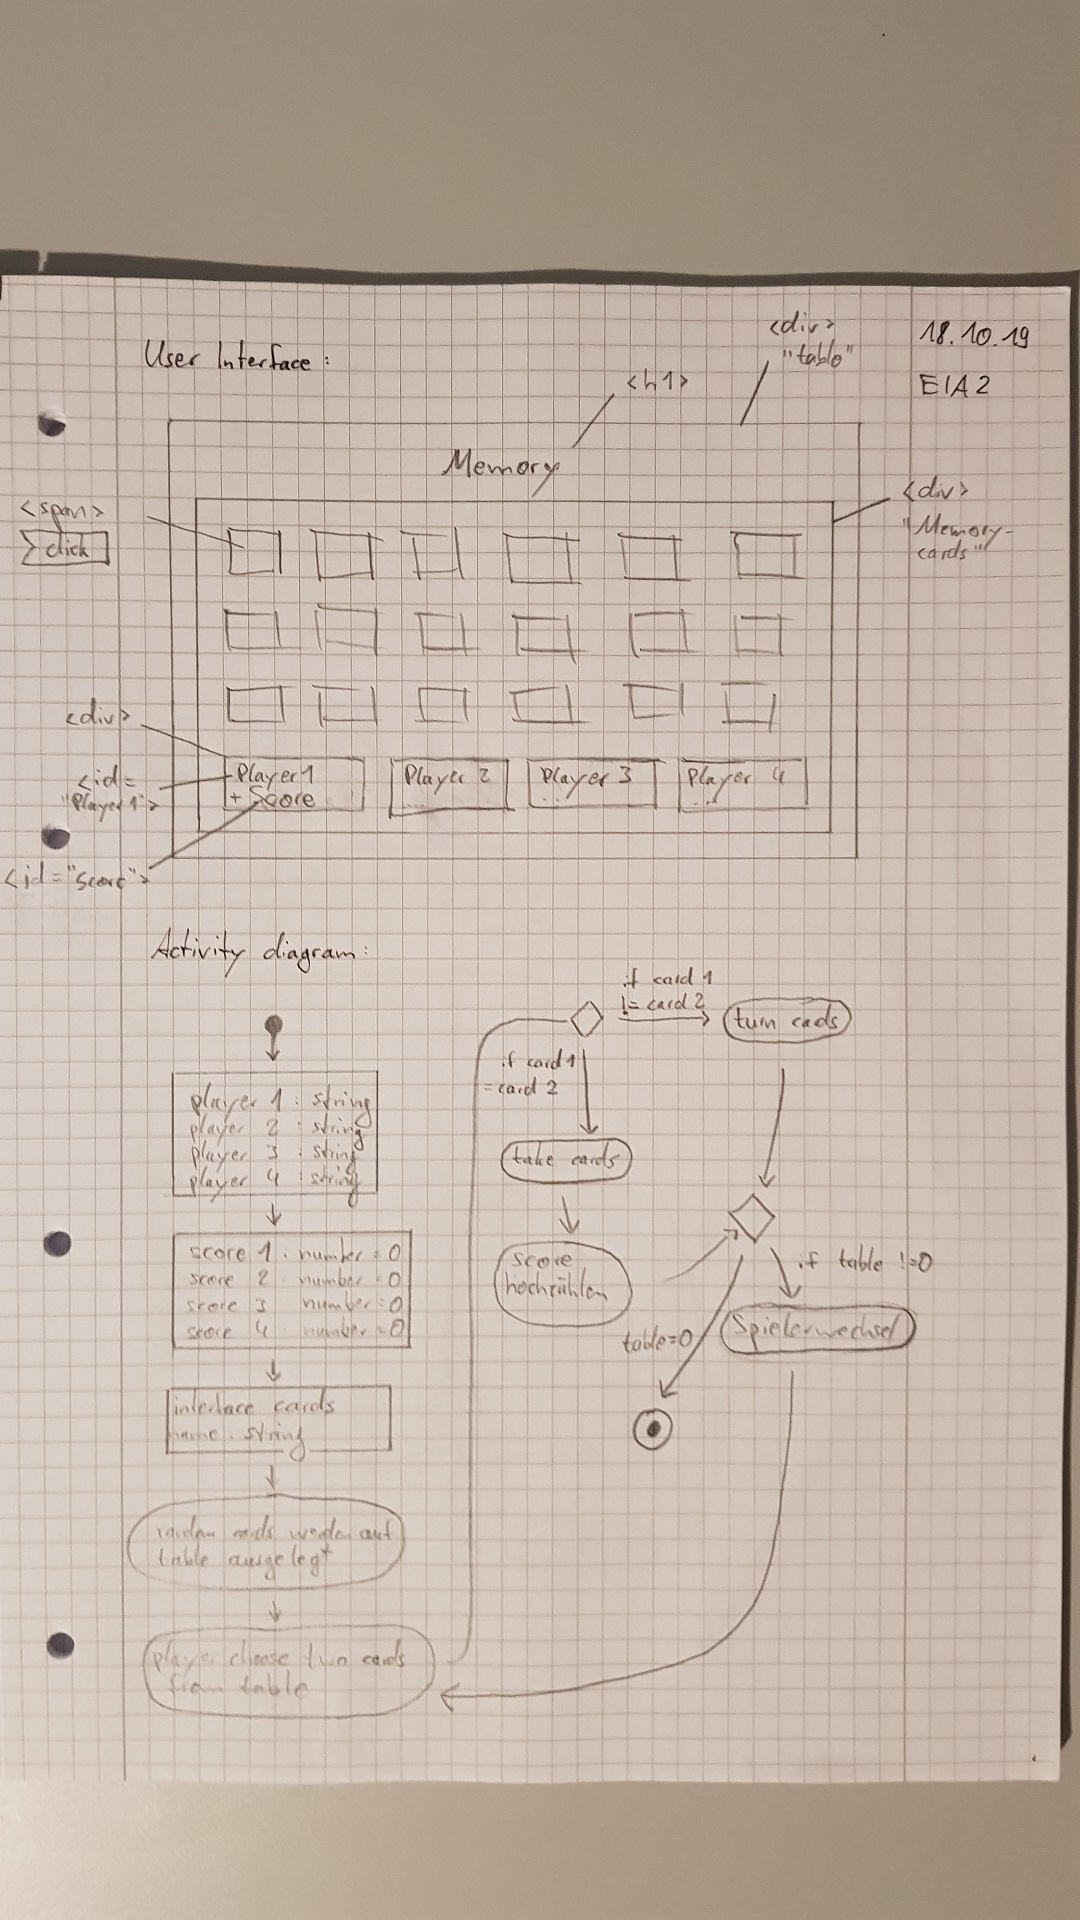 18.10.19
EIA2
User Interface:
<div>
"table"
<h1>
Memory
<span>
click
<div>
"Memory-
cards"
<div>
<id=
"Player 1">
<id="Score">
Player 1
+ Score
Player 2
...
Player 3
...
Player 4
...
Activity diagram:
player 1 : string
player 2 : string
player 3 : string
player 4 : string
score 1 : number = 0
score 2 : number = 0
score 3 number = 0
score 4 : number = 0
interface cards
name : string
random cards werden auf
table ausgelegt
player choose two cards
from table
if card 1
!= card 2
turn cads
if card 1
= card 2
take cards
score
hochzählen
if table !=0
table=0
Spielerwechsel